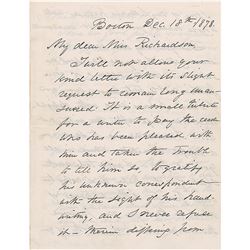 Boston Dec. 18th 1878.
My dear Miss Richardson,
I will not allow your
kind letter with its slight
request to remain long unan-
swered. It is a small tribute
for a writer to pay the one
who has been pleased with
him and taken the trouble
to tell him so, to gratify
his unknown correspondent
with the sight of his hand-
writing, and I never refuse
it — differing from